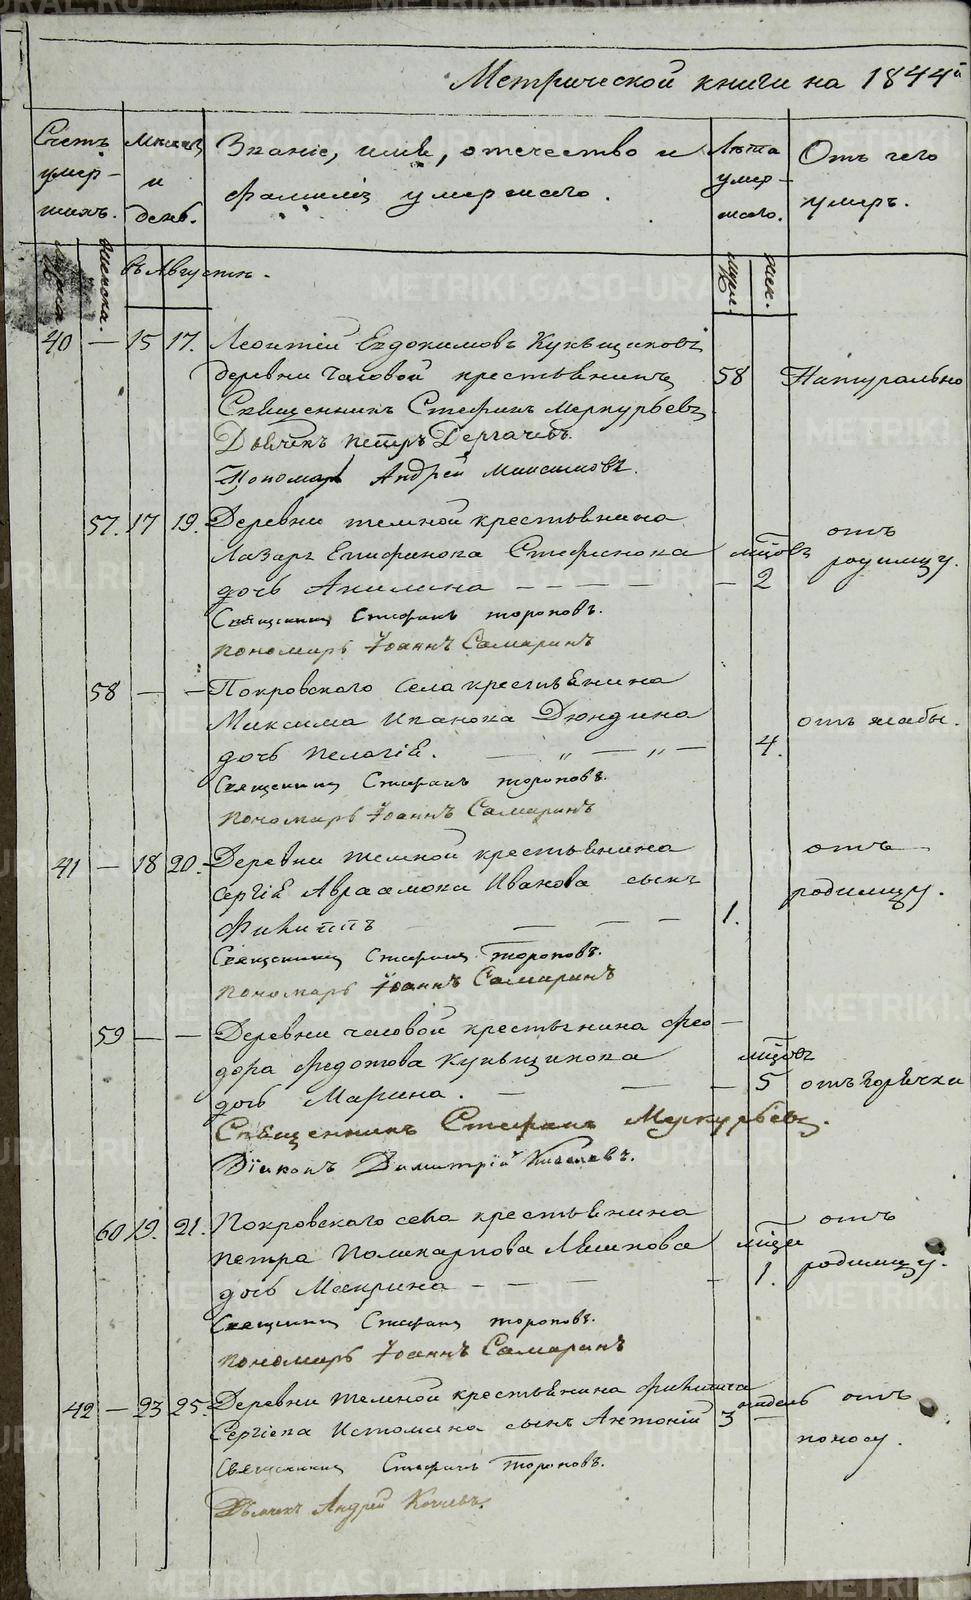 Метрической книги на 1844й
Счетъ умер- шихъ.
Мѣсяцъ и день.
Званіе, имя, отечество и фамилія умершаго.
Лѣта умер- шаго.
Отъ чего умеръ.
женска.
муж.
жен.
въ Августѣ.
40 — 15 17. Леонтій Евдокимовъ Кукьщиковъ
деревни Часовой крестьянинъ 58 Натурально
Священникъ Стефанъ Меркурьевъ
Дьячекъ Петръ Дергачевъ.
Пономарь Андрей Максимовъ.
57. 17 19. Деревни темной крестьянина отъ
Лазаря Епифанова Стефанова мѣцовъ родимцу.
дочь Акилина — — — — — 2
Священникъ Стефанъ Тороповъ.
Пономарь Іоаннъ Самаринъ
58 — — Покровского села крестьянина
Максима Иванова Дюндина отъ жабы.
дочь Пелагія. — „ — „ — 4.
Священникъ Стефанъ Тороповъ.
Пономарь Іоаннъ Самаринъ
41 — 18 20. Деревни темной крестьянина отъ
Сергія Авраамова Иванова сынъ родимцу.
Филиппъ — — — 1.
Священникъ Стефанъ Тороповъ.
Пономарь Іоаннъ Самаринъ
59 — — Деревни часовой крестьянина Фео —
дора Федотова Кукьщикова мѣцовъ
дочь Марина. — — — 5 отъ горячки
Священникъ Стефанъ Меркурьевъ.
Діаконъ Димитрій
60 19. 21. Покровского села крестьянина отъ
Петра Поликарпова Лѣшкова мѣци родимцу.
дочь Макрина — — — — 1.
Священникъ Стефанъ Тороповъ.
Пономарь Іоаннъ Самаринъ
42 — 23 25. Деревни темной крестьянина Филиппа
Сергіева Истомина сынъ Антоній 3 недель отъ
поносу.
Священникъ Стефанъ Тороповъ.
Дьячекъ Андрей
METRIKI.GASO-URAL.RU